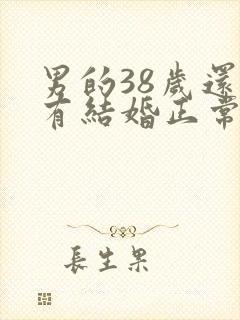 男的38歲還
有結婚正常
長生果